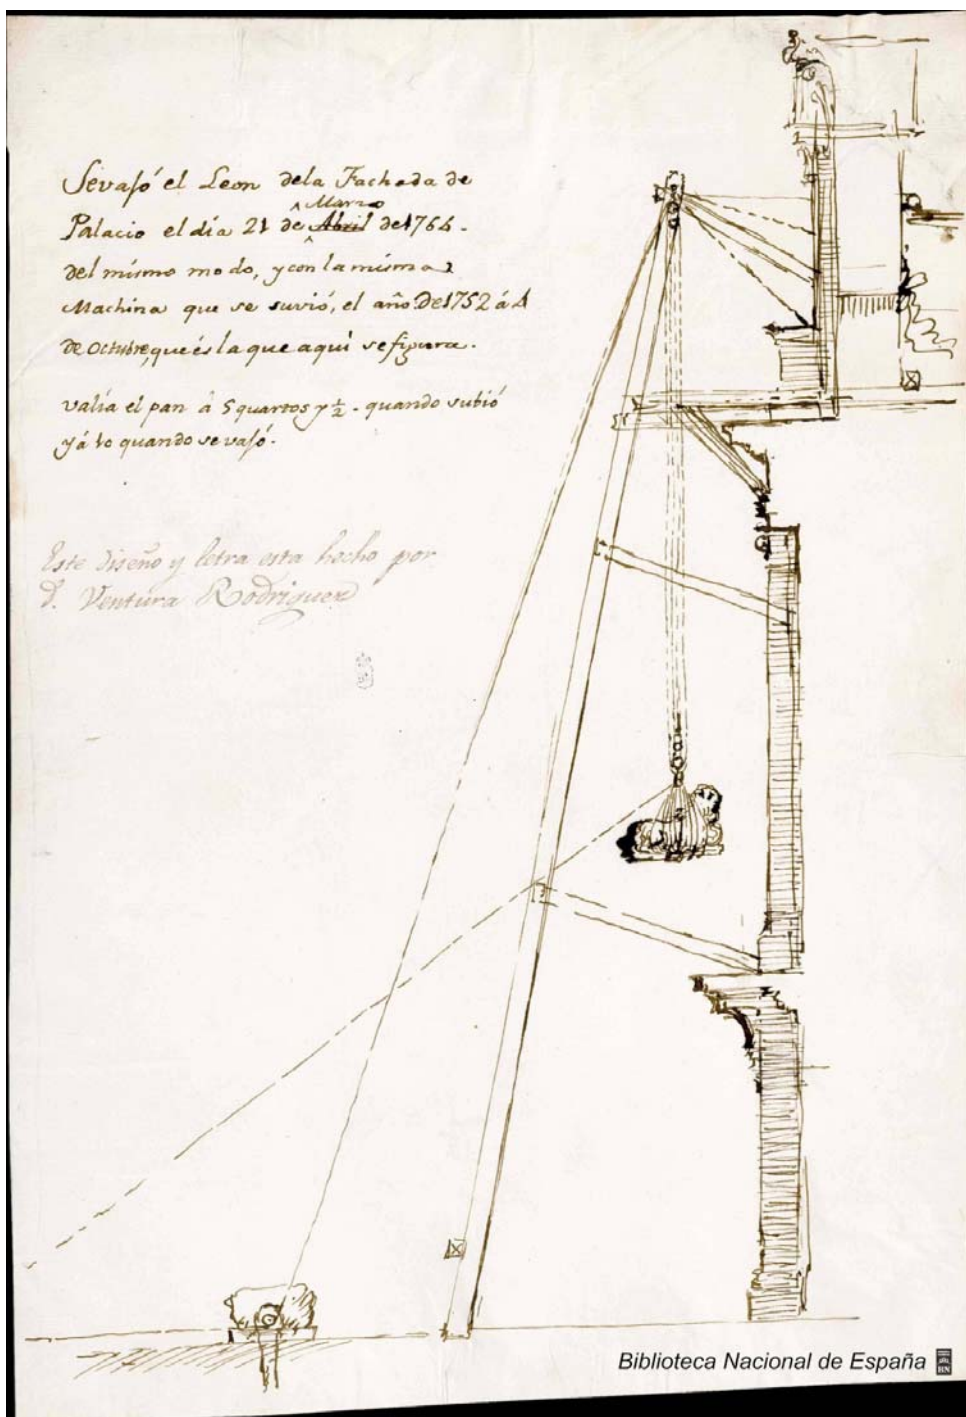 Sevajó el Leon dela Fachada de
Marzo
Palacio el día 21 de Abril de 1764.
del mismo modo, y con la misma
Machina que se suvió, el año de 1752 á 4
de Octubre, que és la que aqui se figura.
valía el pan á 5 quartos y ½. quando subió
y á 10 quando se vajó.
Este diseño y letra esta hecho por
D. Ventura Rodriguez
Biblioteca Nacional de España
BN